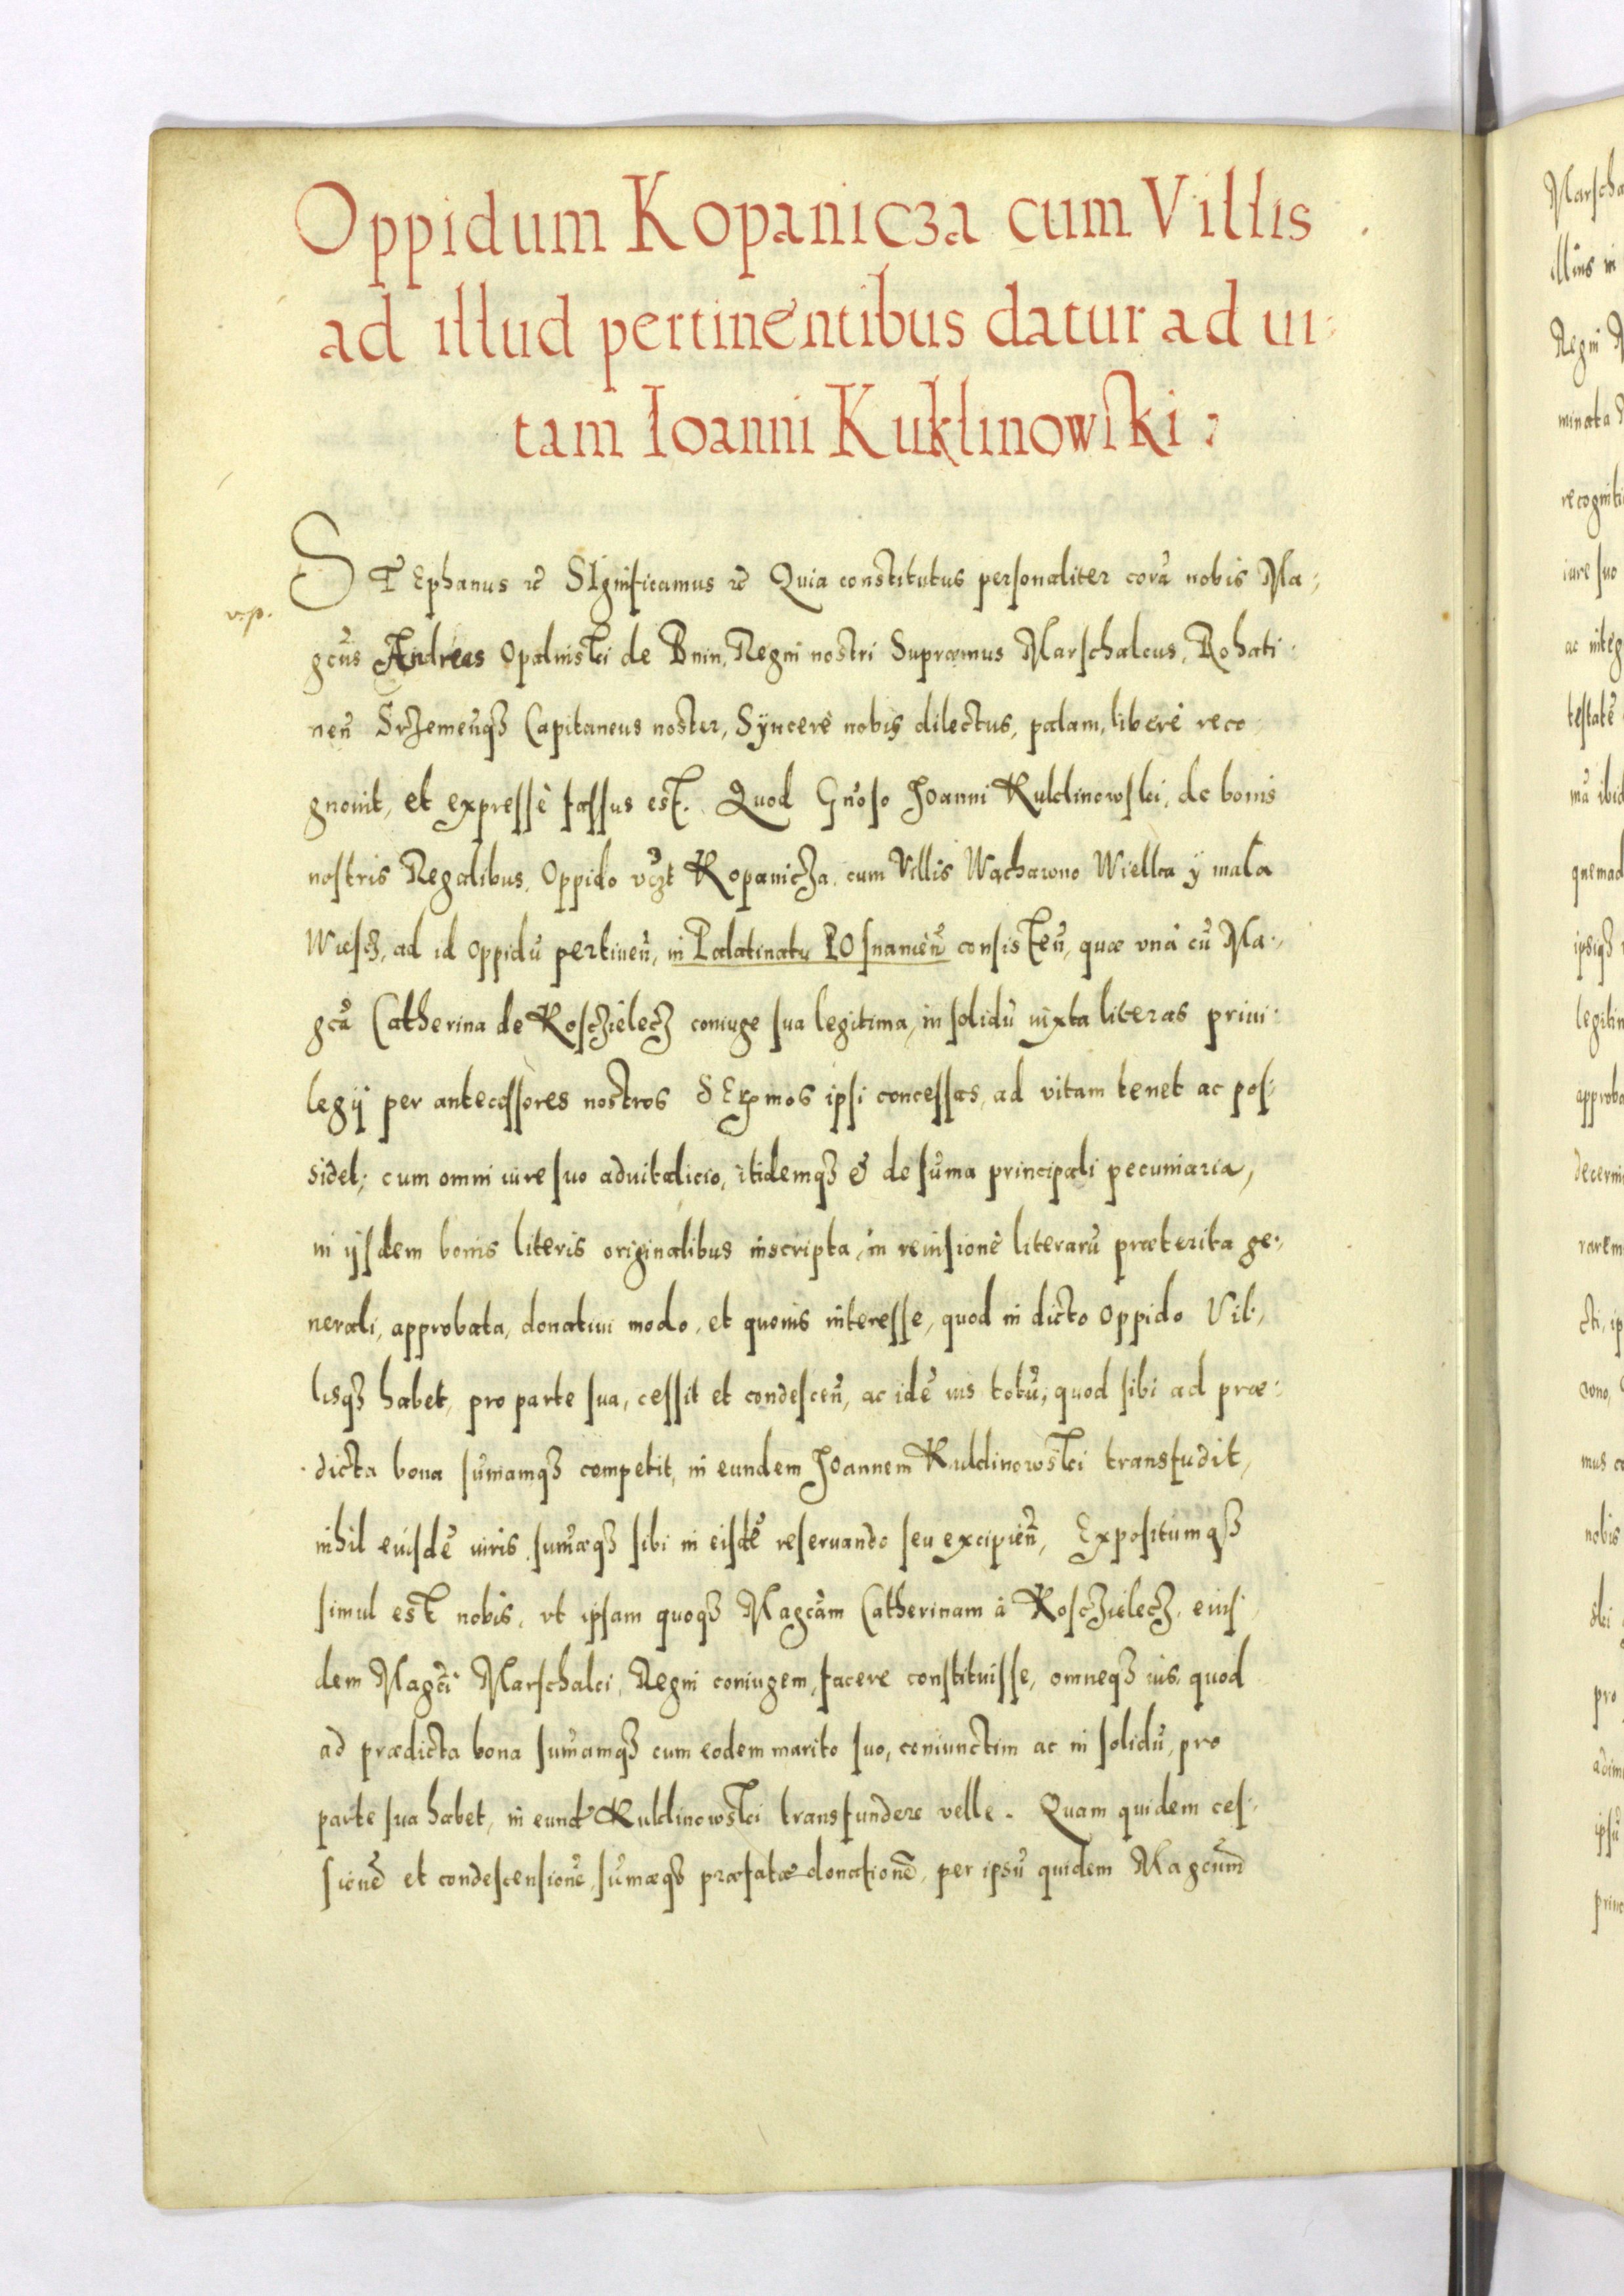 Oppidum Kopanicza cum Villis
ad illud pertinentibus datur ad ui:
tam Ioanni Kuklinowski:
STEphanus etc SIgnificamus etc Quia constitutus personaliter corã nobis Ma:
v.p.
gcus Andreas Opalinski de Bnin, Regni nostri Supræmus Marschalcus, Rohati:
neñ Srzemeñqз Capitaneus noster, Sÿncerè nobis dilectus, palam, liberè reco:
gnouit, et expressè fassus est. Quod Gñoso Joanni Kuklinowski, de bonis
nostris Regalibus, Oppido vczt Kopanicza, cum Villis Wąchawno Wielka ÿ mala
Wiesz, ad id Oppidũ pertineñ, in Palatinatu POsnamèn̄ consisTeñ, quæ vnà cũ Ma:
gcã Catherina de Kosczielecz coniuge sua legitima, in solidũ iuxta literas priui:
legÿ per antecessores nostros SErmos ipsi concessas, ad vitam tenet ac pos:
sidet; cum omni iure suo aduitalicio, itidemqз & de sũma principali pecuniaria,
in ÿsdem bonis literis originalibus inscripta, in reuisionè literarũ præterita ge:
nerali, approbata, donatiui modo, et quouis interesse, quod in dicto Oppido Vil:
lisqз habet, pro parte sua, cessit et condesceñ, ac idẽ ius totũ, quod sibi ad præ:
dicta bona sũmamqз competit, in eundem Joannem Kuklinowski transfudit,
nihil euisdẽ iuris sum̃æqз sibi in eisdẽ reseruando seu excipieñ, Expositumqз
simul est nobis, vt ipsam quoqз Magcàm Catherinam à Kosczielecz, eius:
dem Magci Marschalci, Regni coniugem, facere constituisse, omneqз ius, quod
ad prædicta bona sum̃amqз cum eodem marito suo, coniunctim ac in solidũ, pro
parte sua habet, in eund̃ Kuklinowski transfundere velle. Quam quidem ces:
sionẽ et condescensionẽ, sũmæqз præfatæ donationẽ, per ipsũ quidem Magcum̃